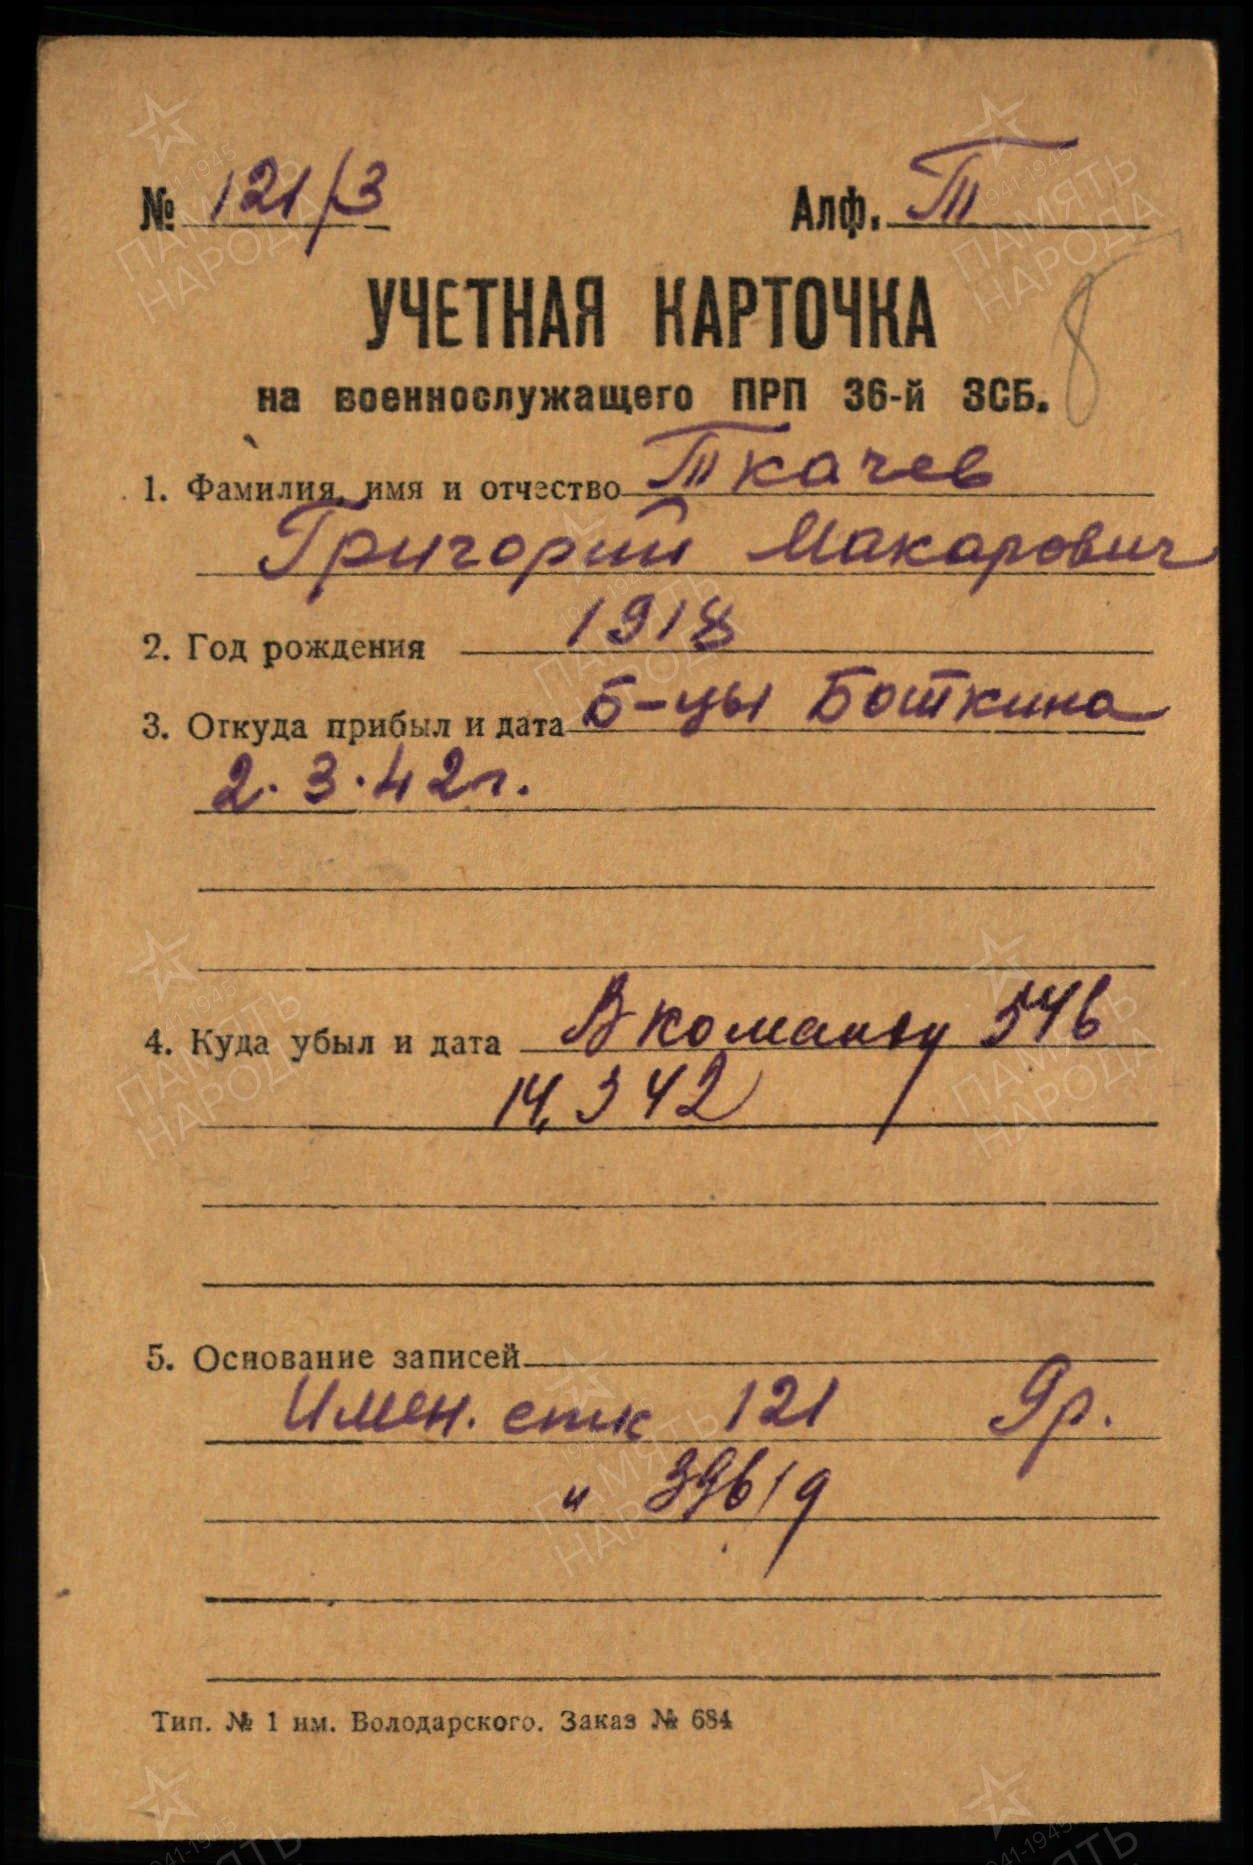 № 121/3 Алф. Т
8
УЧЕТНАЯ КАРТОЧКА
на военнослужащего ПРП 36-й ЗСБ.
1. Фамилия, имя и отчество Ткачев
Григорий Макарович
2. Год рождения 1918
3. Откуда прибыл и дата Б-цы Боткина
2.3.42г.
4. Куда убыл и дата В команду 546
14.3 42
5. Основание записей
Имен. спис 121
" 396/9
Тип. № 1 им. Володарского. Заказ № 684
ПАМЯТЬ НАРОДА
1941-1945